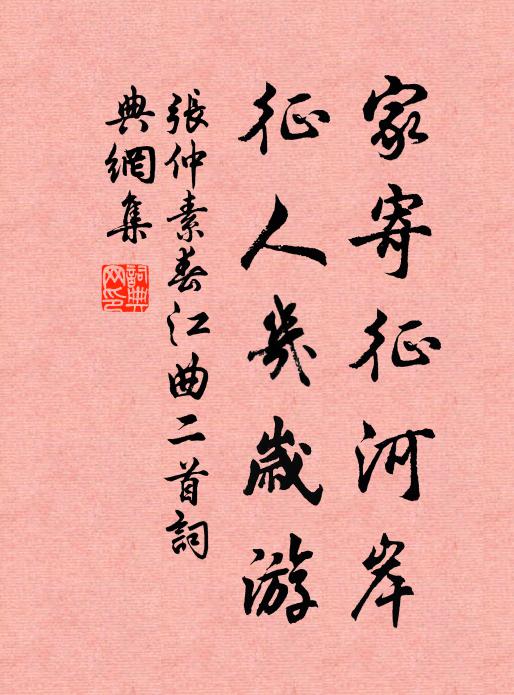 家寄征河岸
征人幾歲游
張仲素春江曲二首詞
典網集
詞典網印